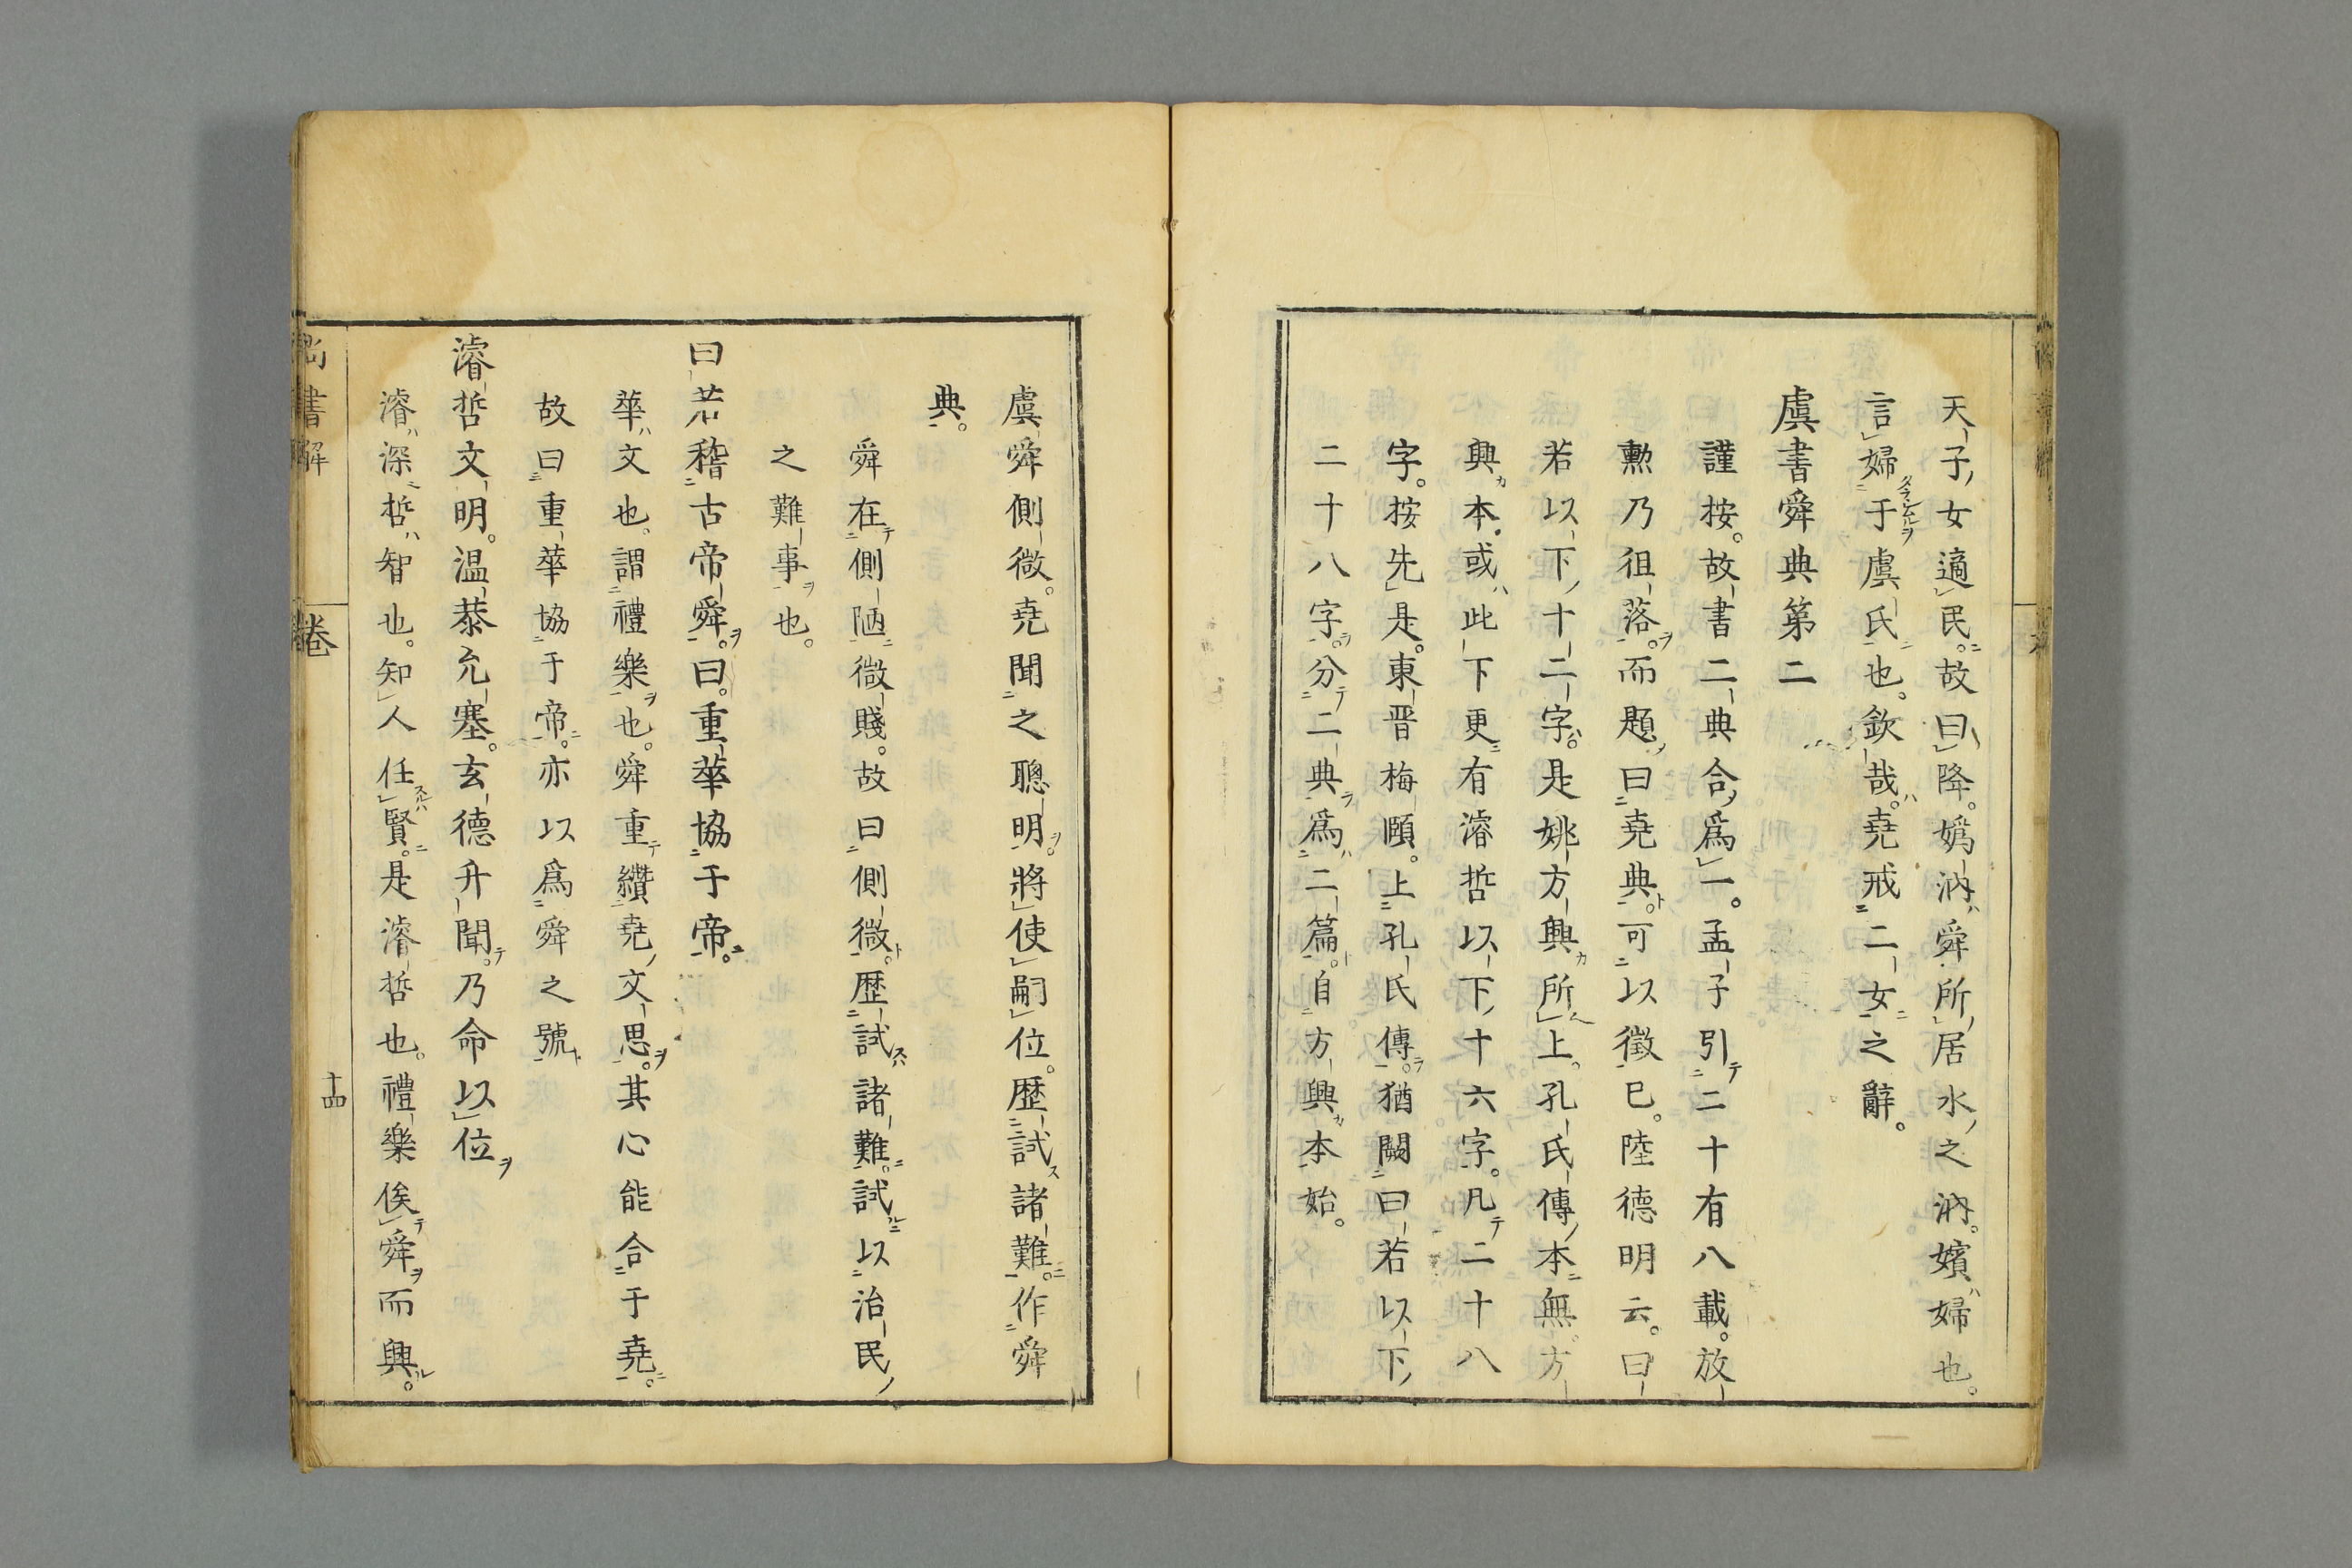 天子女適民。故曰降。嬀汭舜所居水之汭。嬪婦也。
言婦于虞氏也。欽哉。堯戒二女之辭。
虞書舜典第二
謹按。故書二典合爲一。孟子引二十有八載。放
勲乃徂落。而題曰堯典。可以徵已。陸德明云。曰
若以下十二字。是姚方興所上。孔氏傳本無。方
興本。或此下更有濬哲以下十六字。凡二十八
字。按先是。東晋梅頤。上孔氏傳。猶闕曰若以下
二十八字。分二典爲二篇。自方興本始。
虞舜側微。堯聞之聰明。將使嗣位。歷試諸難。作舜
典。
舜在側陋微賤。故曰側微。歷試諸難。試以治民
之難事也。
曰若稽古帝舜。曰。重華協于帝。
華文也。謂禮樂也。舜重纘堯文思。其心能合于堯。
故曰重華協于帝。亦以爲舜之號
濬哲文明。温恭允塞。玄德升聞。乃命以位
濬深哲智也。知人任賢。是濬哲也。禮樂俟舜而興。
尚書解
卷
十四